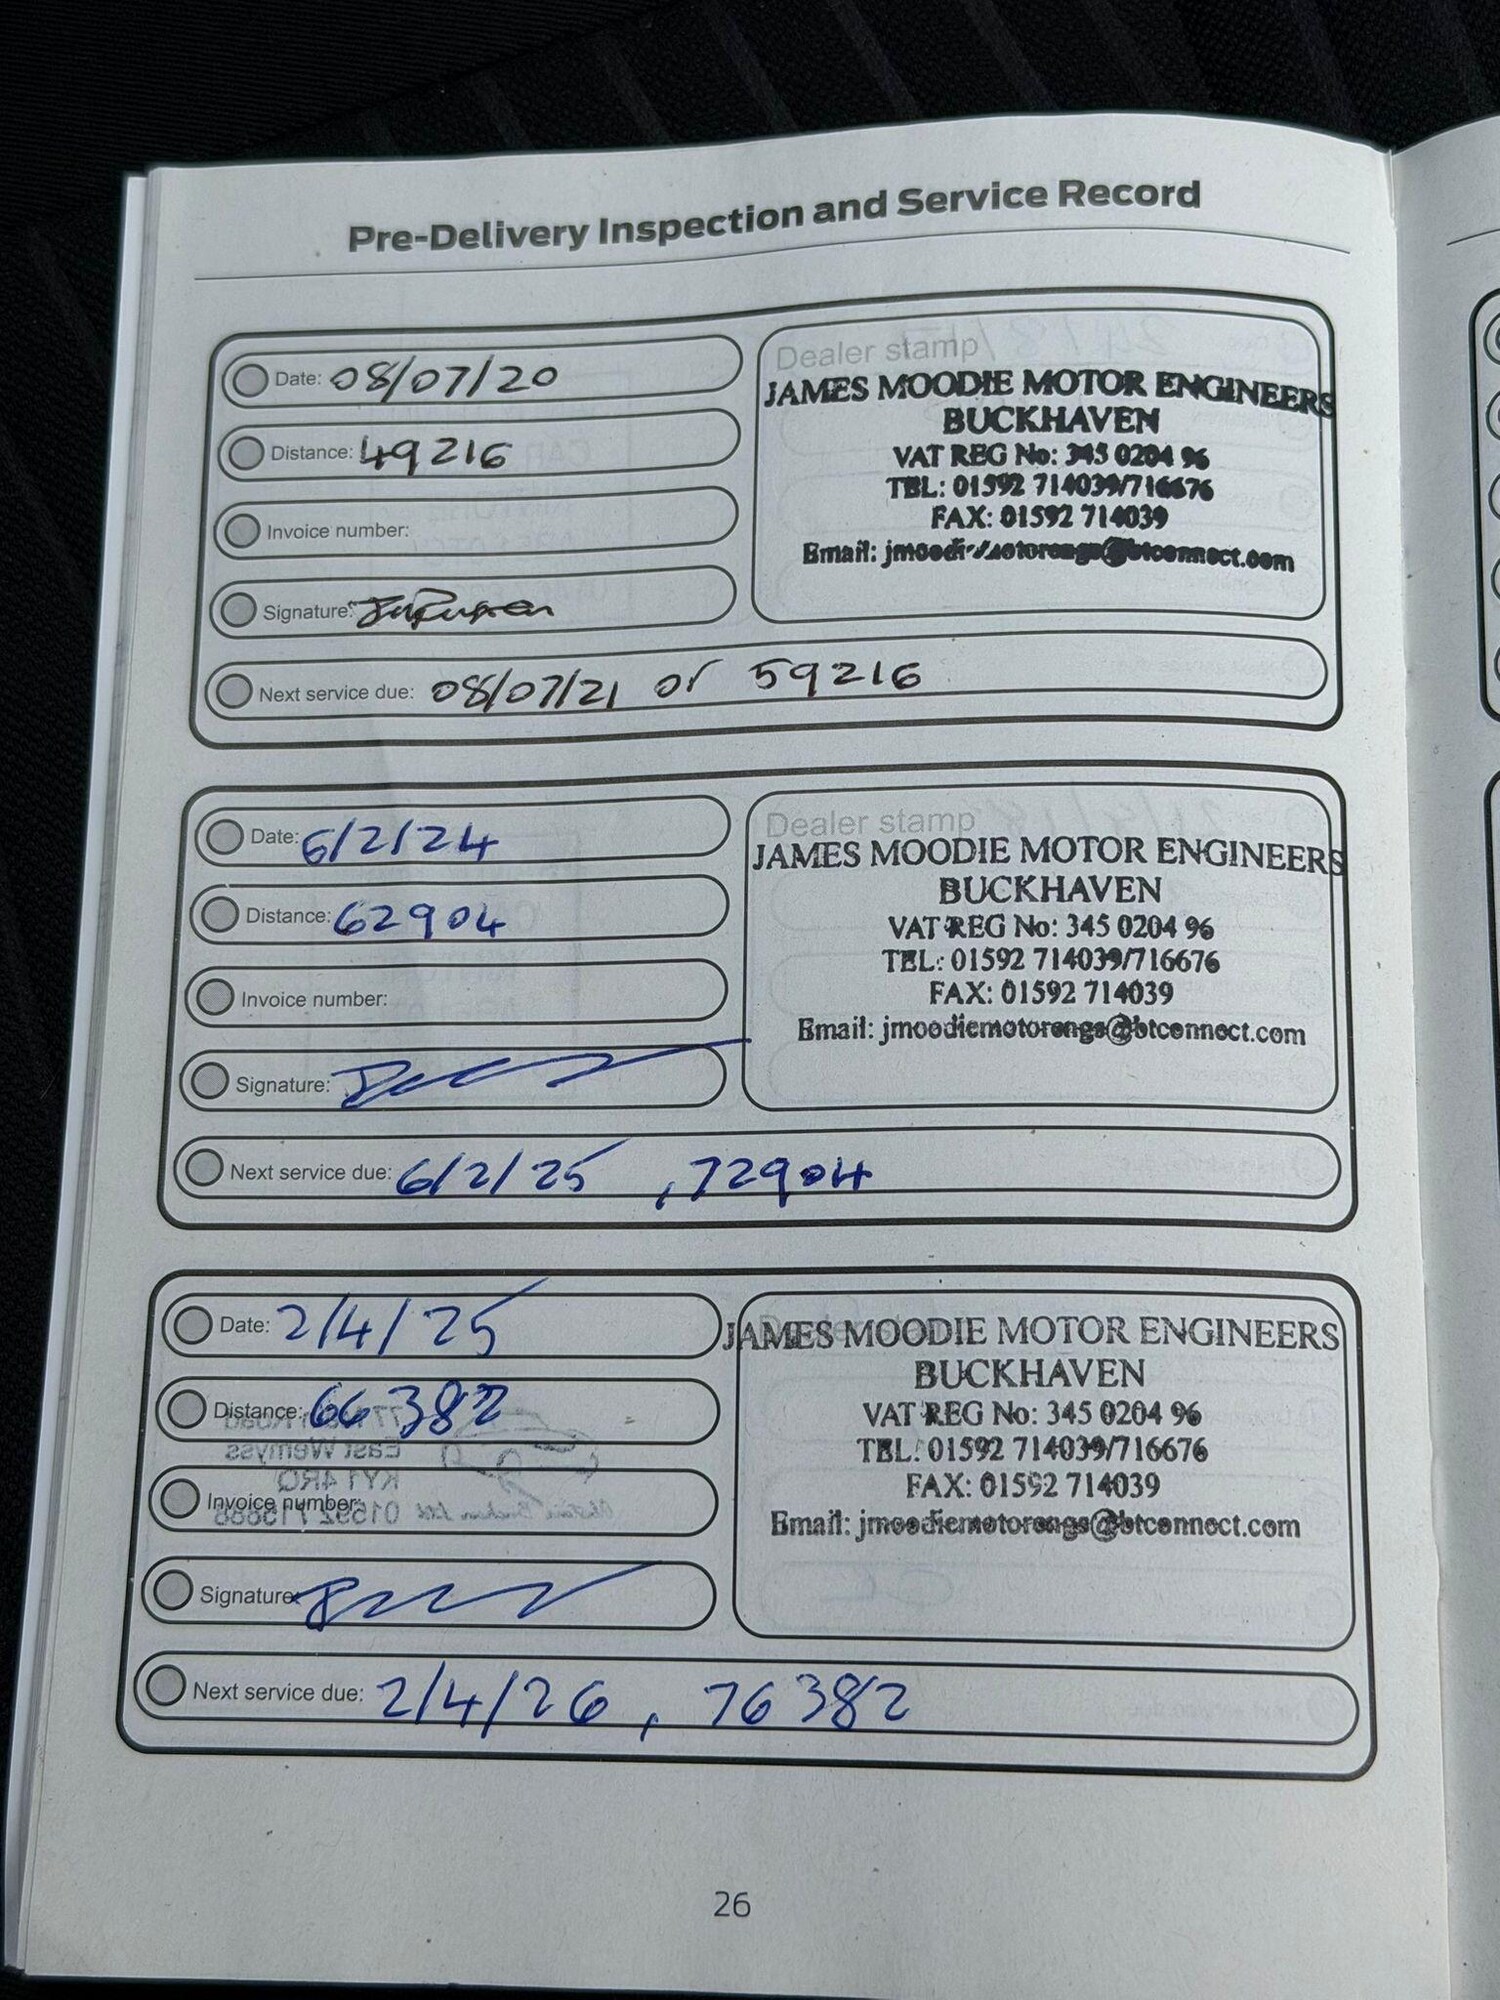 Pre-Delivery Inspection and Service Record
Date: 08/07/20
Distance: 49216
Invoice number:
Signature:
Next service due: 08/07/21 or 59216
Dealer stamp
JAMES MOODIE MOTOR ENGINEERS
BUCKHAVEN
VAT REG No: 345 0204 96
TEL: 01592 714039/716676
FAX: 01592 714039
Email:
Date: 6/2/24
Distance: 62904
Invoice number:
Signature:
Next service due: 6/2/25 , 72904
Dealer stamp
JAMES MOODIE MOTOR ENGINEERS
BUCKHAVEN
VAT REG No: 345 0204 96
TEL: 01592 714039/716676
FAX: 01592 714039
Email: jmoodiemotorengs@btconnect.com
Date: 2/4/25
Distance: 66382
Invoice number:
Signature:
Next service due: 2/4/26 , 76382
JAMES MOODIE MOTOR ENGINEERS
BUCKHAVEN
VAT REG No: 345 0204 96
TEL: 01592 714039/716676
FAX: 01592 714039
Email: jmoodiemotorengs@btconnect.com
26